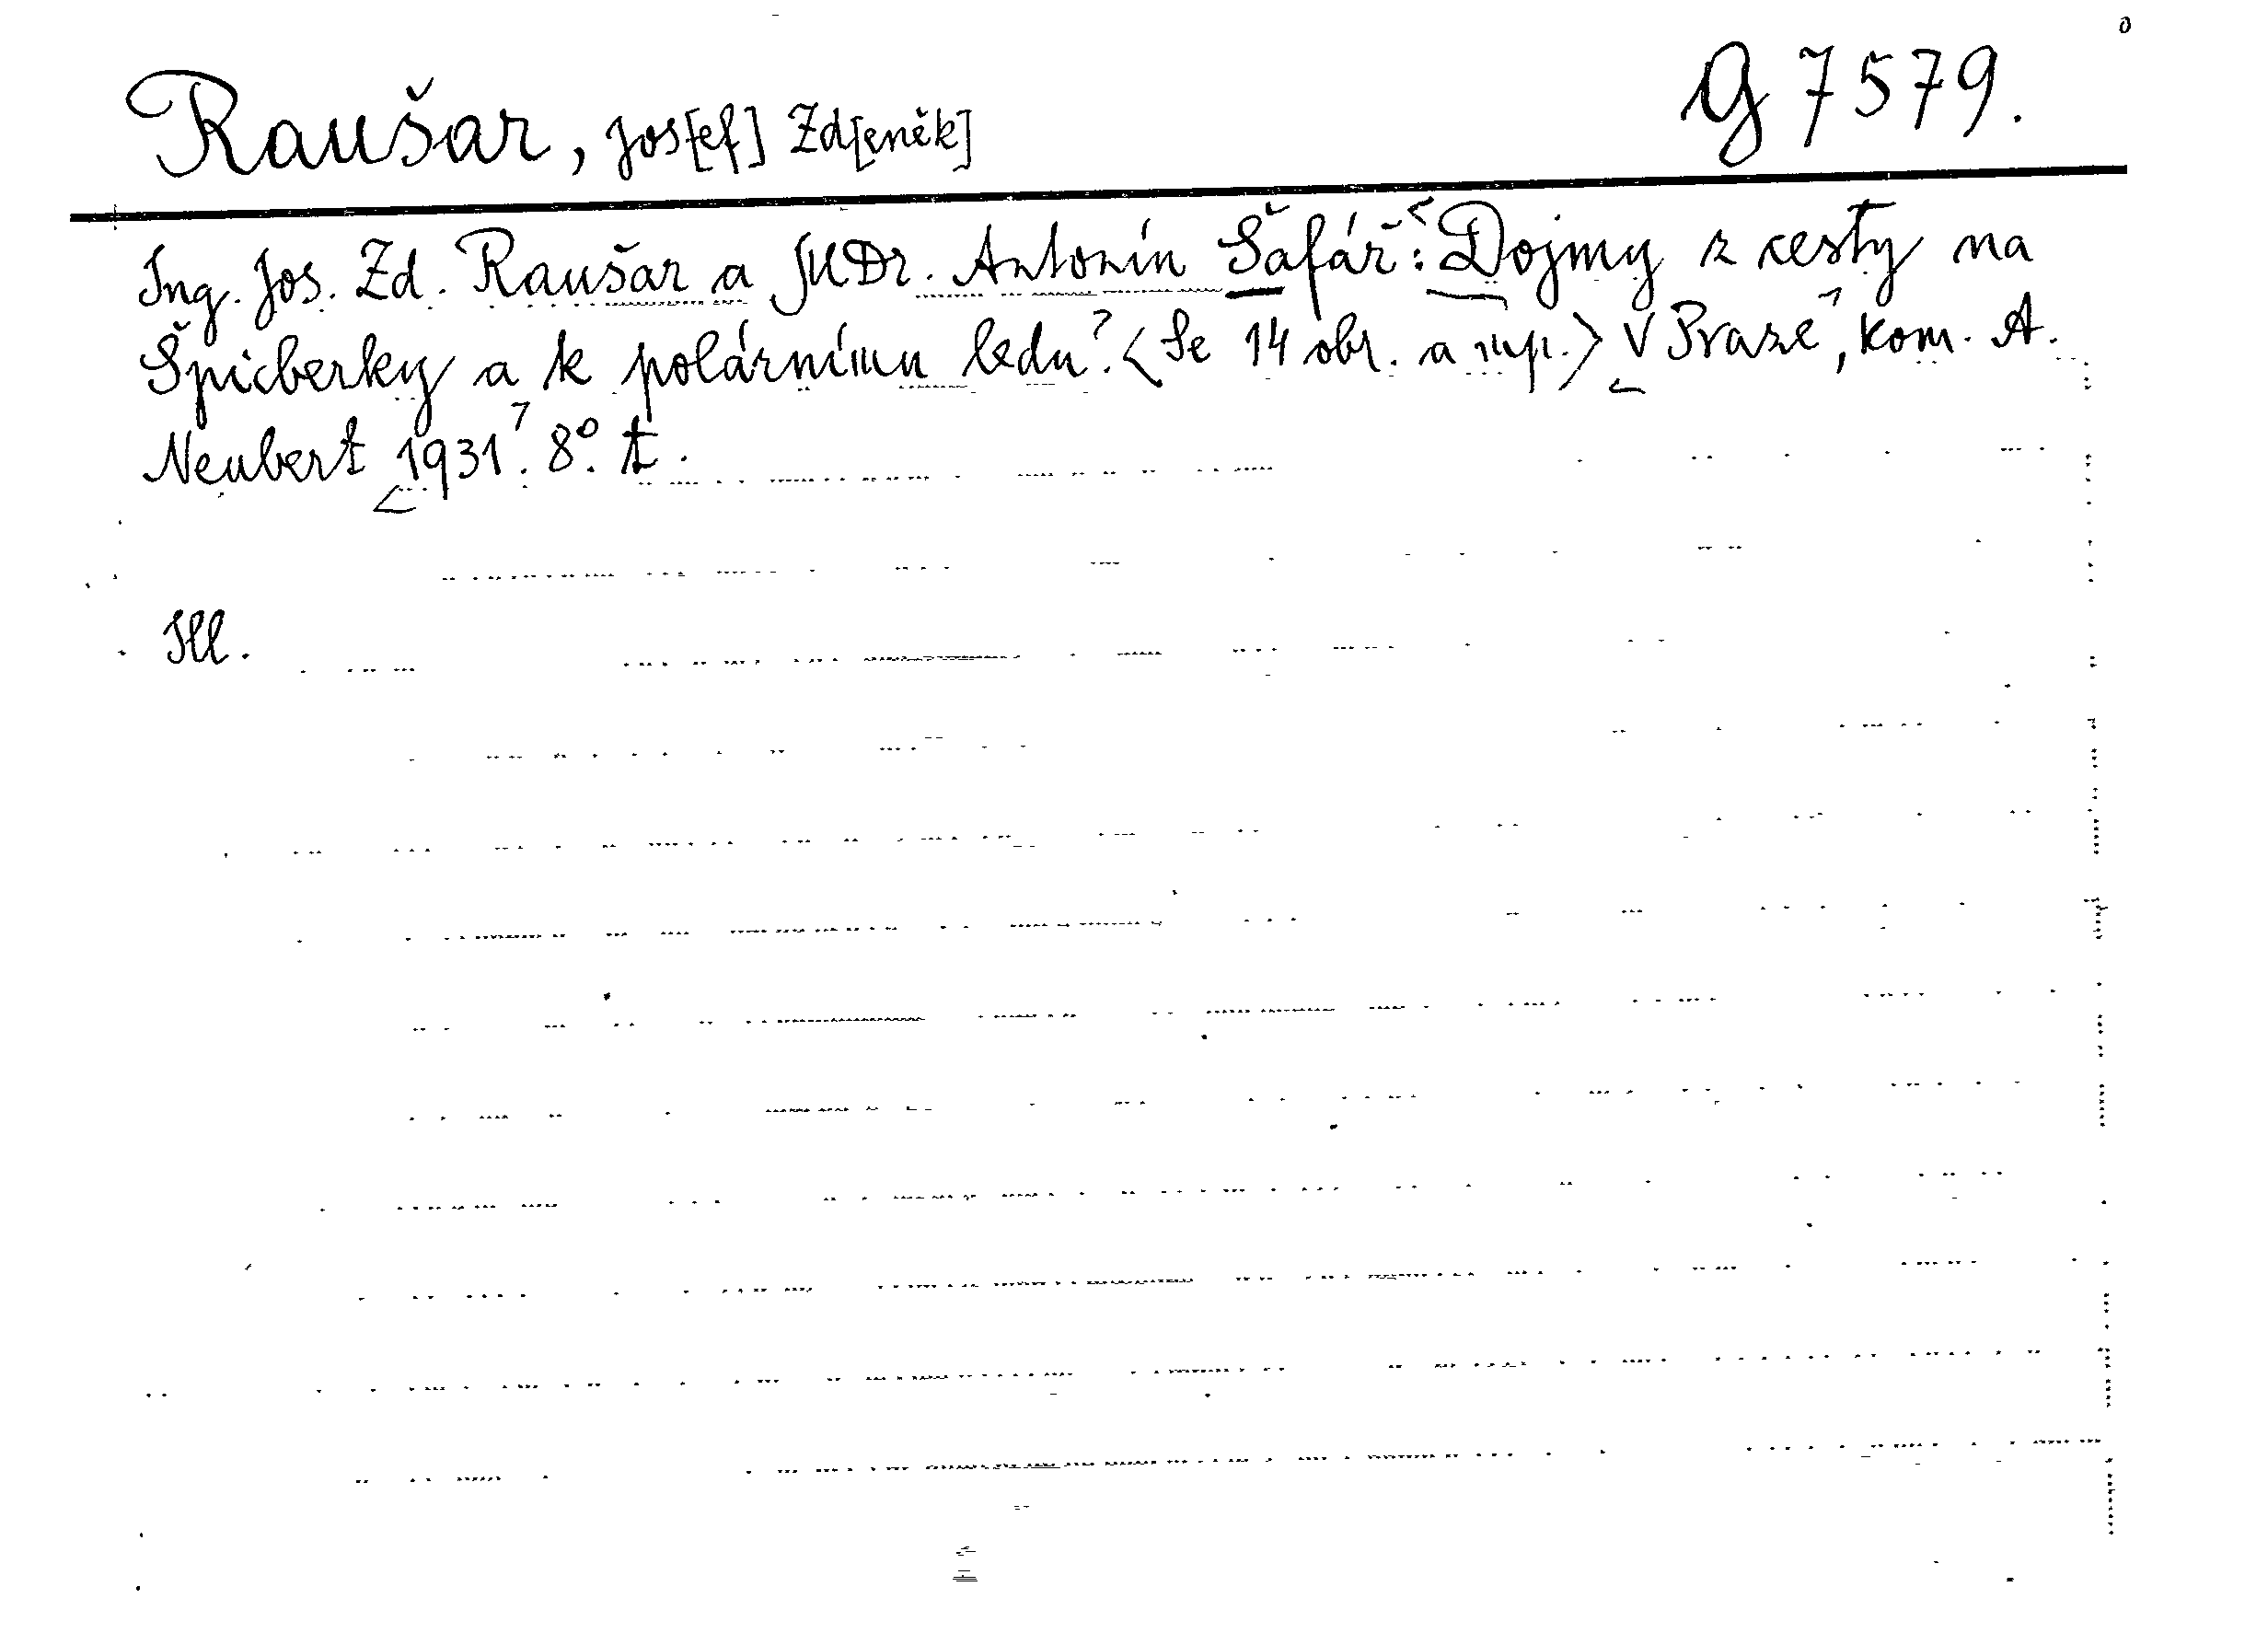 Raušar, Jos[ef] Zd[eněk] G 7579.
Ing. Jos. Zd. Raušar a JUDr. Antonín Šafář: Dojmy z cesty na
Špicberky a k polárnímu ledu. <Se 14 obr. a mp.> V Praze, Kom. A.
Neubert 1931. 8°. t.
Ill.